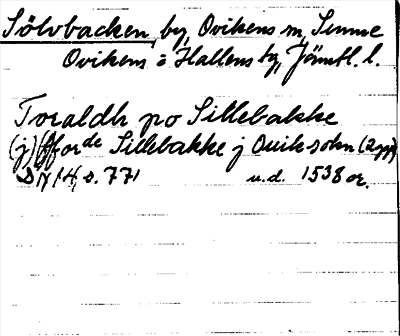 Sölvbacken, by, Ovikens sn, Sunne
Ovikens o Hallens tg, Jämtl. l.
Toraldh po Sillebakke
(j) fforde Sillebakke j Ouik sokn (2 ggr)
DN 14, s. 771 u.d. 1538 or.